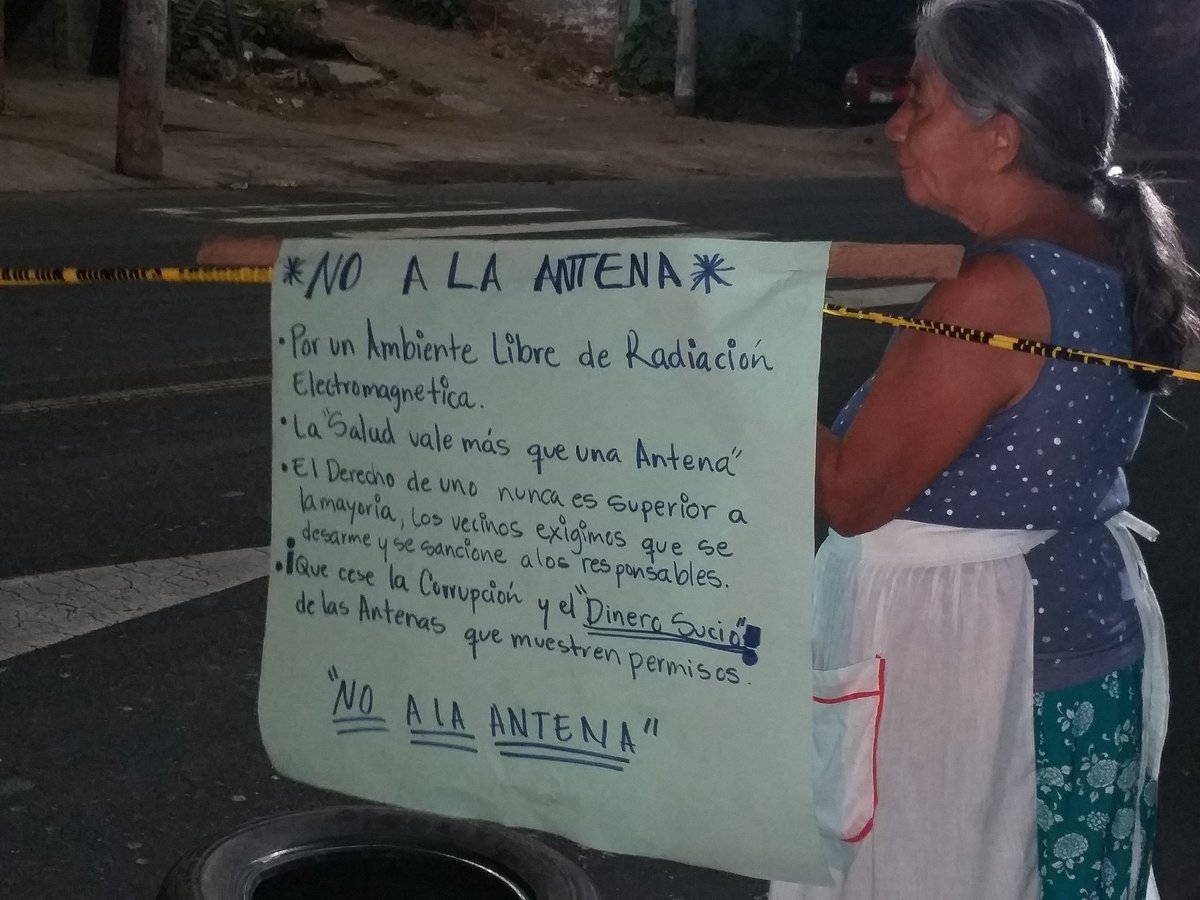 *NO A LA ANTENA*
• Por un Ambiente Libre de Radiación
Electromagnetica.
• La "Salud vale más que una Antena"
• El Derecho de uno nunca es superior a
la mayoria, los vecinos exigimos que se
desarme y se sancione a los responsables.
• ¡Que cese la Corrupción y el "Dinero Sucio"!
de las Antenas que muestren permisos.
"NO A LA ANTENA"